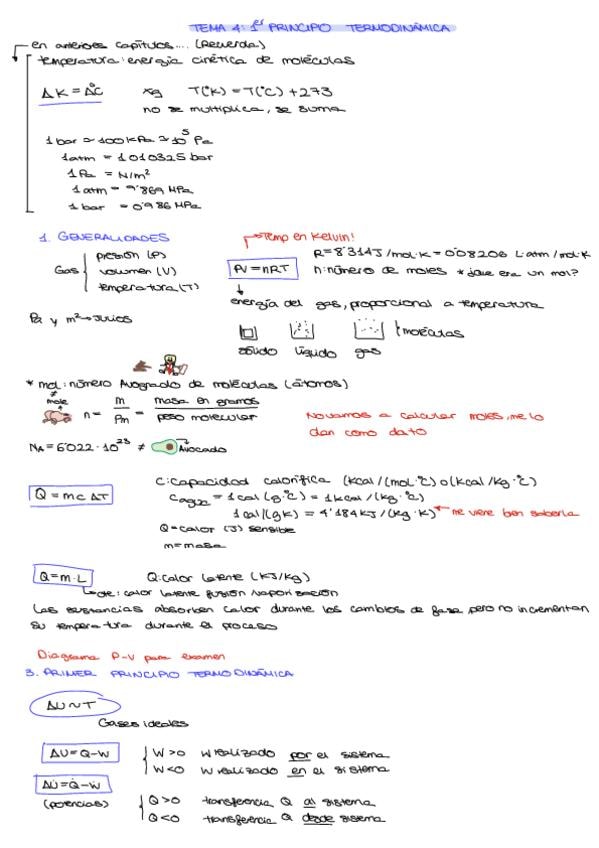 TEMA 4: 1er PRINCIPIO TERMODINÁMICA
en anteriores capítulos.... (Recuerda)
temperatura: energía cinética de moléculas
ΔK = ΔC xq T(ºK) = T(ºC) + 273
no se multiplica, se suma
1 bar ≃ 100 kPa ≃ 10⁵ Pa
1 atm = 1'010325 bar
1 Pa = N/m²
1 atm = 9'869 MPa
1 bar = 0'986 MPa
1. GENERALIDADES
Temp en Kelvin!
Gas { presión (P)
volumen (V)
temperatura (T)
PV = nRT
R = 8'314 J/mol·K = 0'08206 L·atm/mol·K
n: número de moles * ¿que era un mol?
energía del gas, proporcional a temperatura
Pa y m³ → Julios
} moléculas
sólido líquido gas
* mol: número Avogrado de moléculas (átomos)
≠
mole
n = m/Pm = masa en gramos/peso molecular
No vamos a calcular moles, me lo
dan como dato
NA = 6'022 · 10²³ ≠ Avocado
Q = mcΔT
C: capacidad calorífica (kcal/(mol·ºC) o (kcal/kg·ºC)
Cagua = 1 cal (g·ºC) = 1 kcal/(kg·ºC)
1 cal/(gK) = 4'184 kJ/(kg·K) → me viene bien saberla
Q = calor (J) sensible
m = masa
Q = m·L
Q: calor latente (kJ/kg)
cte: calor latente fusión/vaporización
Las sustancias absorben calor durante los cambios de fase, pero no incrementan
su temperatura durante el proceso
Diagrama P-V para examen
3. PRIMER PRINCIPIO TERMODINÁMICA
ΔU ~ T
Gases ideales
ΔU = Q - W
{ W > 0 W realizado por el sistema
W < 0 W realizado en el sistema
ΔU̇ = Q̇ - Ẇ
(potencias)
{ Q > 0 transferencia Q al sistema
Q < 0 transferencia Q desde sistema